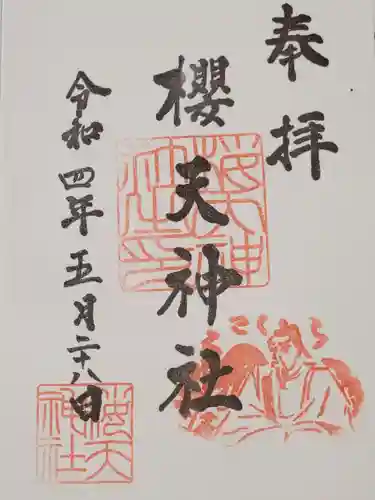 奉拝
櫻天神社
令和四年五月二十八日
さくら
櫻天神社